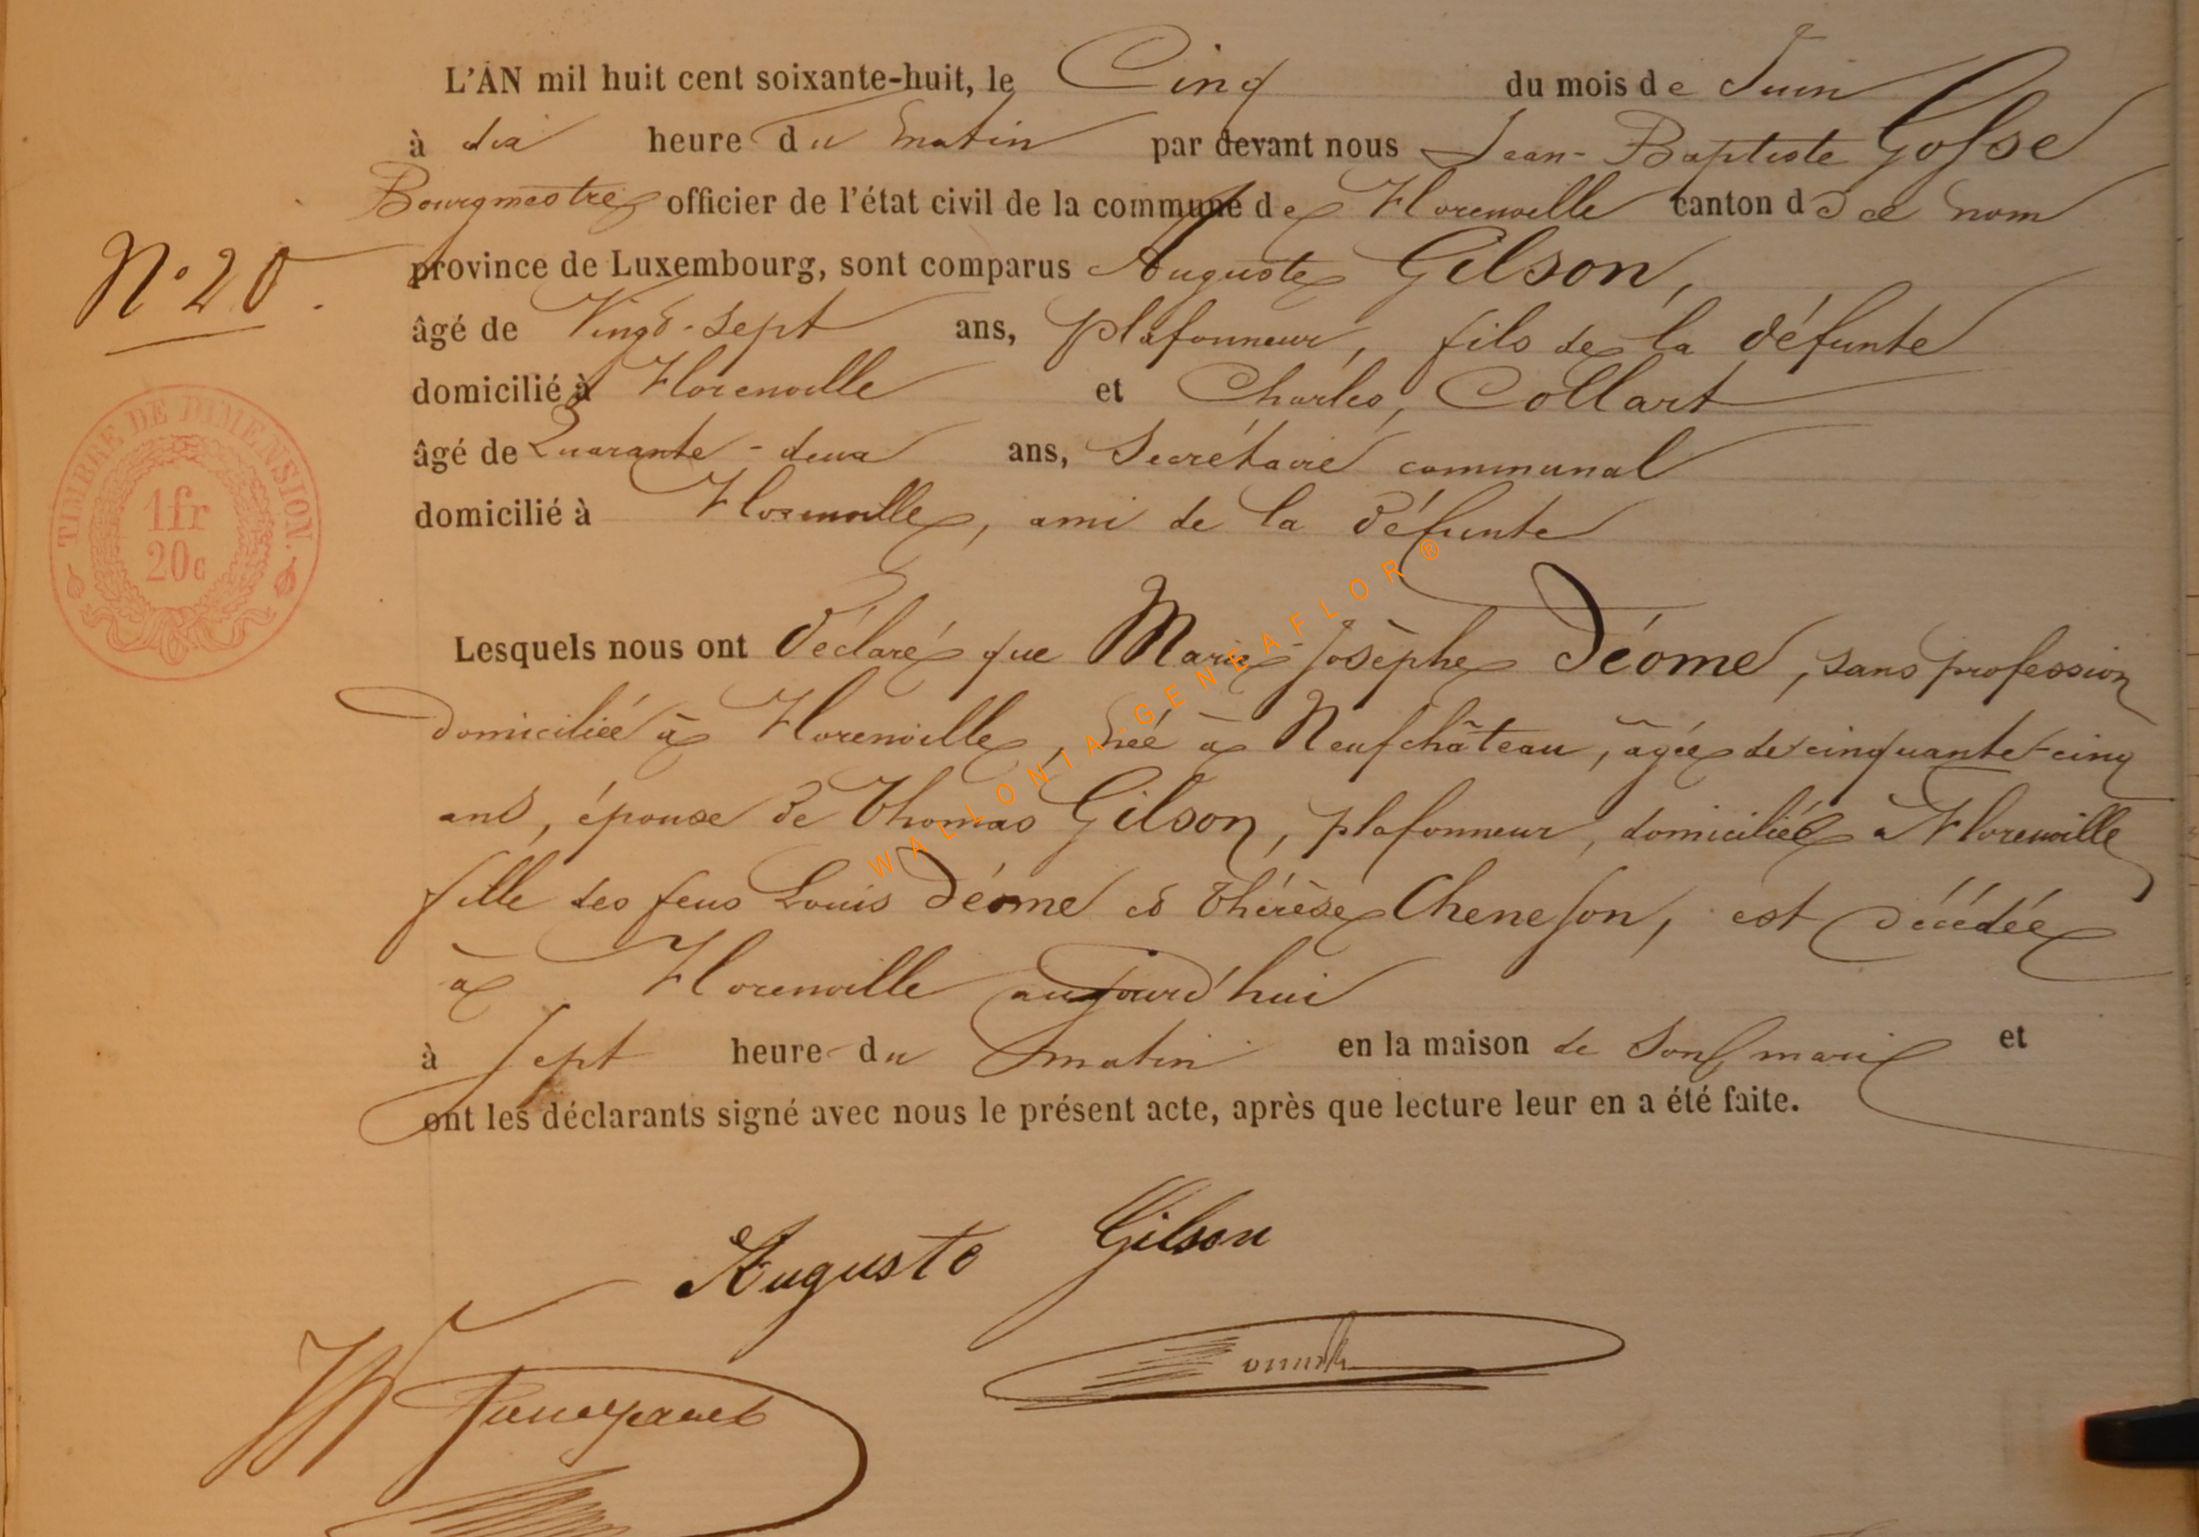 L'AN mil huit cent soixante-huit, le Cinq du mois de Juin
à dix heure du matin par devant nous Jean-Baptiste Gosse
Bourgmestre officier de l'état civil de la commune de Florenville canton de ce nom
N° 20. province de Luxembourg, sont comparus Auguste Gilson,
âgé de Vingt-sept ans, plafonneur, fils de la défunte
domicilié à Florenville et Charles, Collart
âgé de Quarante-deux ans, Secrétaire communal
domicilié à Florenville, ami de la défunte
TIMBRE DE DIMENSION.
1fr
20c
Lesquels nous ont déclaré que Marie-Josèphe Déome, sans profession
domiciliée à Florenville, née à Neufchâteau, âgée de cinquante-cinq
ans, épouse de Thomas Gilson, plafonneur, domicilié à Florenville
fille des feus Louis Déome et Thérèse Cheneson, est décédée
à Florenville aujourd'hui
à Sept heure du matin en la maison de son mari et
ont les déclarants signé avec nous le présent acte, après que lecture leur en a été faite.
WALLONIA-GENEAFLOR®
Auguste Gilson